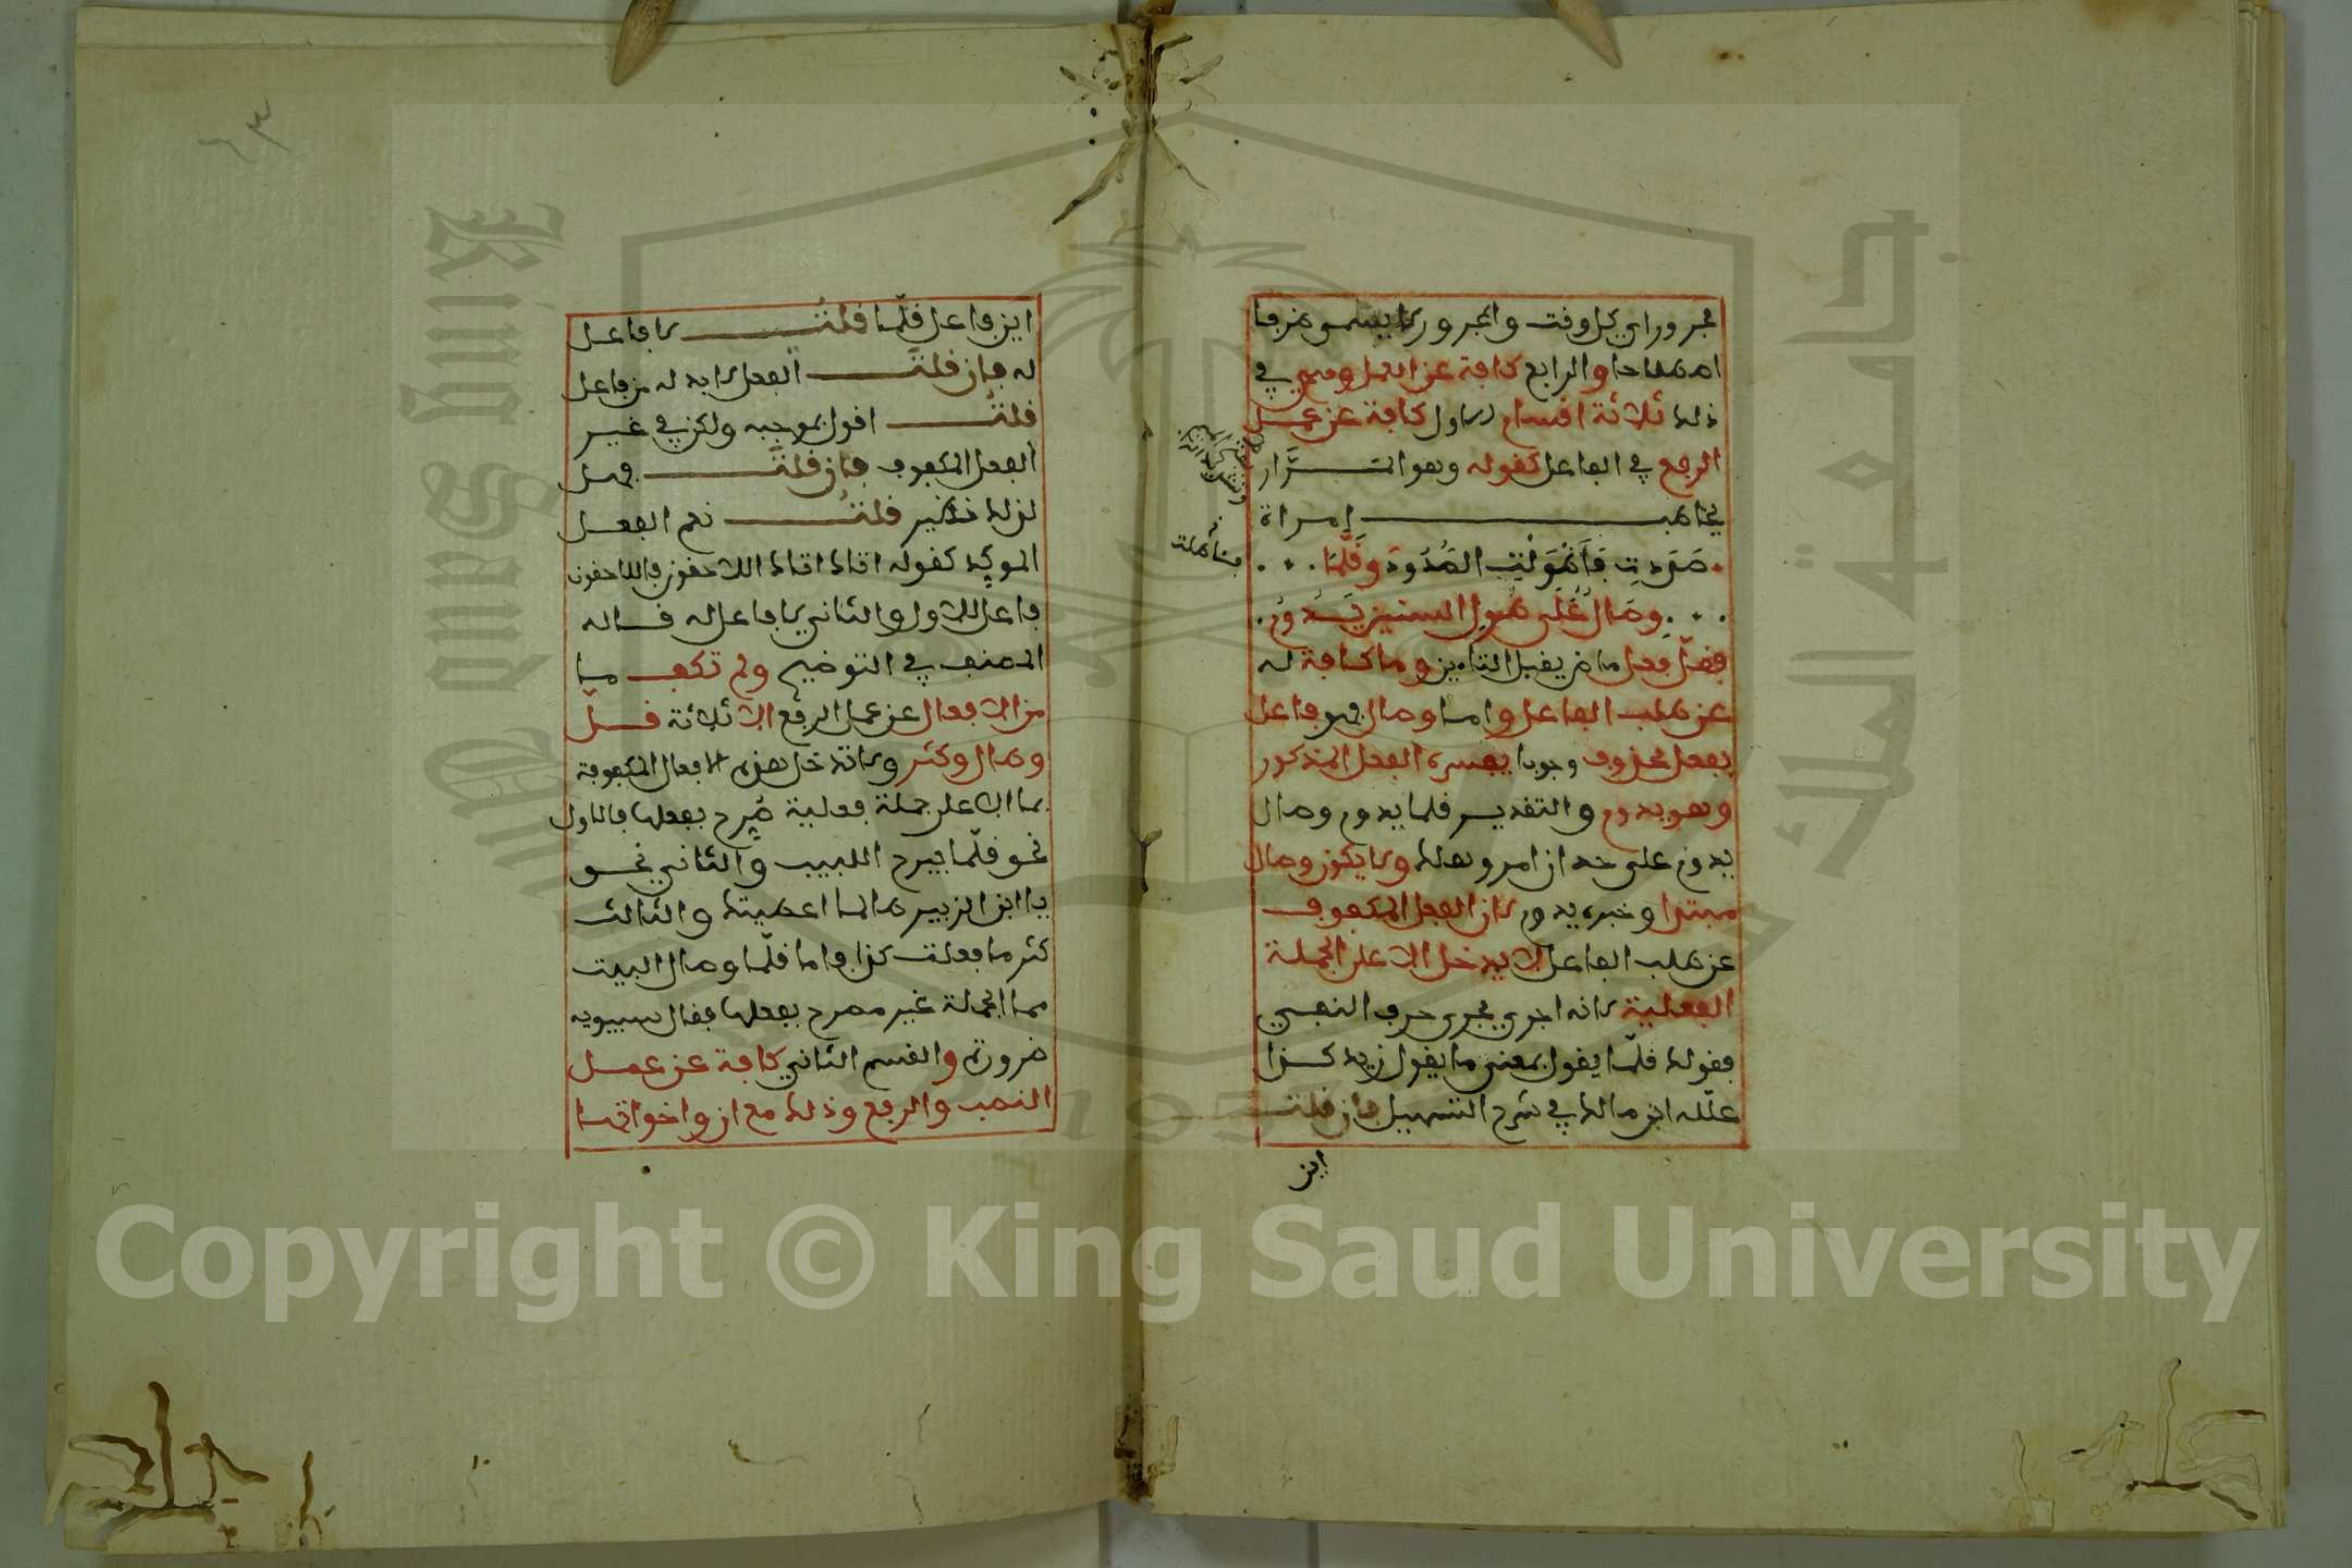 مجرور اي كل وقت والمجرور لا يسمى ظرفا
اصطلاحا والرابع كافة عن العمل وهي في
ذلك ثلاثة اقسام الاول كافة عن عمل
الرفع في الفاعل كقوله وهو المرار
يخاطب إمراة
صَدَدتِ فَأَطْوَلْتِ الصُّدُودَ وَقَلَّمَا
وِصَالٌ عَلَى طُولِ الصدود يَدُومُ
فقلّ فعل ماض يقبل التاء من وما كافة له
عن طلب الفاعل واما وصال فهو فاعل
بفعل محذوف وجوبا يفسره الفعل المذكور
وهو يدوم والتقدير قلما يدوم وصال
يدوم على حد ان امرو هلك ولا يكون وصال
مبتدا وخبره يدوم لان الفعل المكفوف
عن طلب الفاعل لا يدخل الا على الجملة
الفعلية لانه اجري مجرى حرف النفي
فقولك قلّما يقول بمعنى ما يقول زيد كذا
علّله ابن مالك في شرح التسهيل فان قلت
اين
فتأملت
اين فاعل قلّما قلتُ لا فاعل
له فان قلتَ الفعل لا بد له من فاعل
قلتُ اقول بموجبه ولكن في غير
الفعل المكفوف فان قلتَ فهل
لذلك نظير قلتُ نعم الفعل
الموكِد كقوله اتاك اتاك اللاحقون فاللاحقون
فاعل للاول والثاني لا فاعل له قاله
المصنف في التوضيح ولم تكف ما
من الافعال عن عمل الرفع الا ثلاثة قلّ
وطال وكثر ولا تدخل هذه الافعال المكفوفة
بما الا على جملة فعلية صُرِح بفعلها فالاول
نحو قلّما يبرح اللبيب والثاني نحو
يا ابن الزبير طالما اعصيتك والثالث
كثر ما فعلت كذا واما قلّما وصال البيت
مما الجملة غير مصرح بفعلها فقال سيبويه
ضرورة والقسم الثاني كافة عن عمل
النصب والرفع وذلك مع ان واخواتها